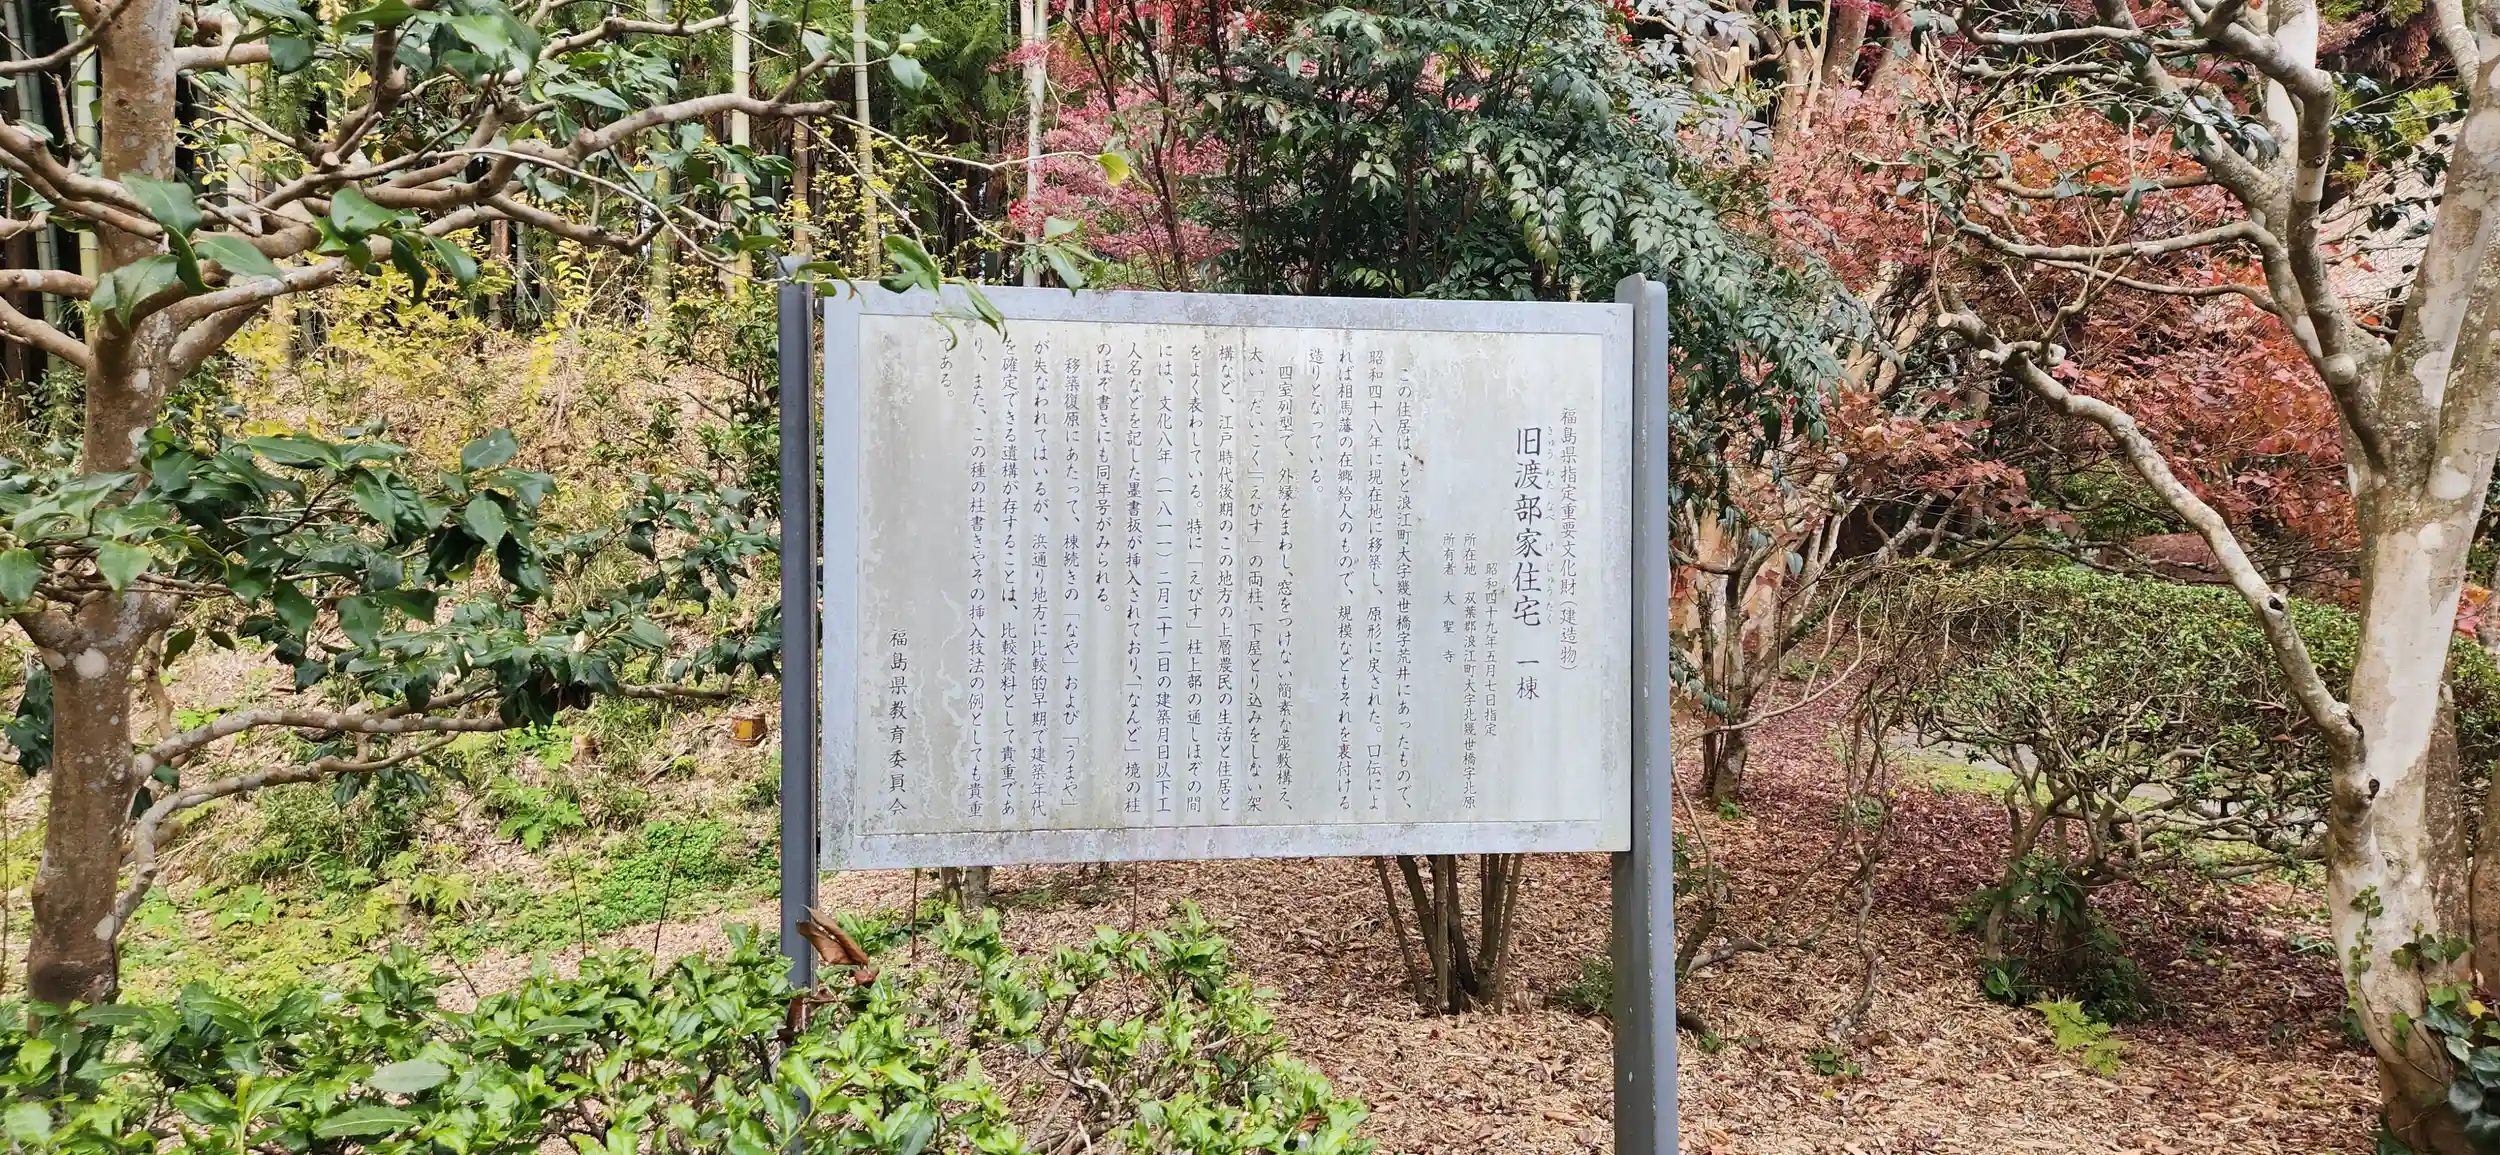 福島県指定重要文化財(建造物)
きゅうわたなべけじゅうたく
旧渡部家住宅 一棟
昭和四十九年五月七日指定
所在地 双葉郡浪江町大字北幾世橋字北原
所有者 大聖寺
この住居は、もと浪江町大字幾世橋字荒井にあったもので、
昭和四十八年に現在地に移築し、原形に戻された。口伝によ
れば相馬藩の在郷給人のもので、規模などもそれを裏付ける
造りとなっている。
四室列型で、外縁をまわし、窓をつけない簡素な座敷構え、
太い「だいこく」「えびす」の両柱、下屋とり込みをしない架
構など、江戸時代後期のこの地方の上層農民の生活と住居と
をよく表わしている。特に「えびす」柱上部の通しほぞの間
には、文化八年(一八一一)二月二十二日の建築月日以下工
人名などを記した墨書板が挿入されており、「なんど」境の柱
のほぞ書きにも同年号がみられる。
移築復原にあたって、棟続きの「なや」および「うまや」
が失なわれてはいるが、浜通り地方に比較的早期で建築年代
を確定できる遺構が存することは、比較資料として貴重であ
り、また、この種の柱書きやその挿入技法の例としても貴重
である。
福島県教育委員会